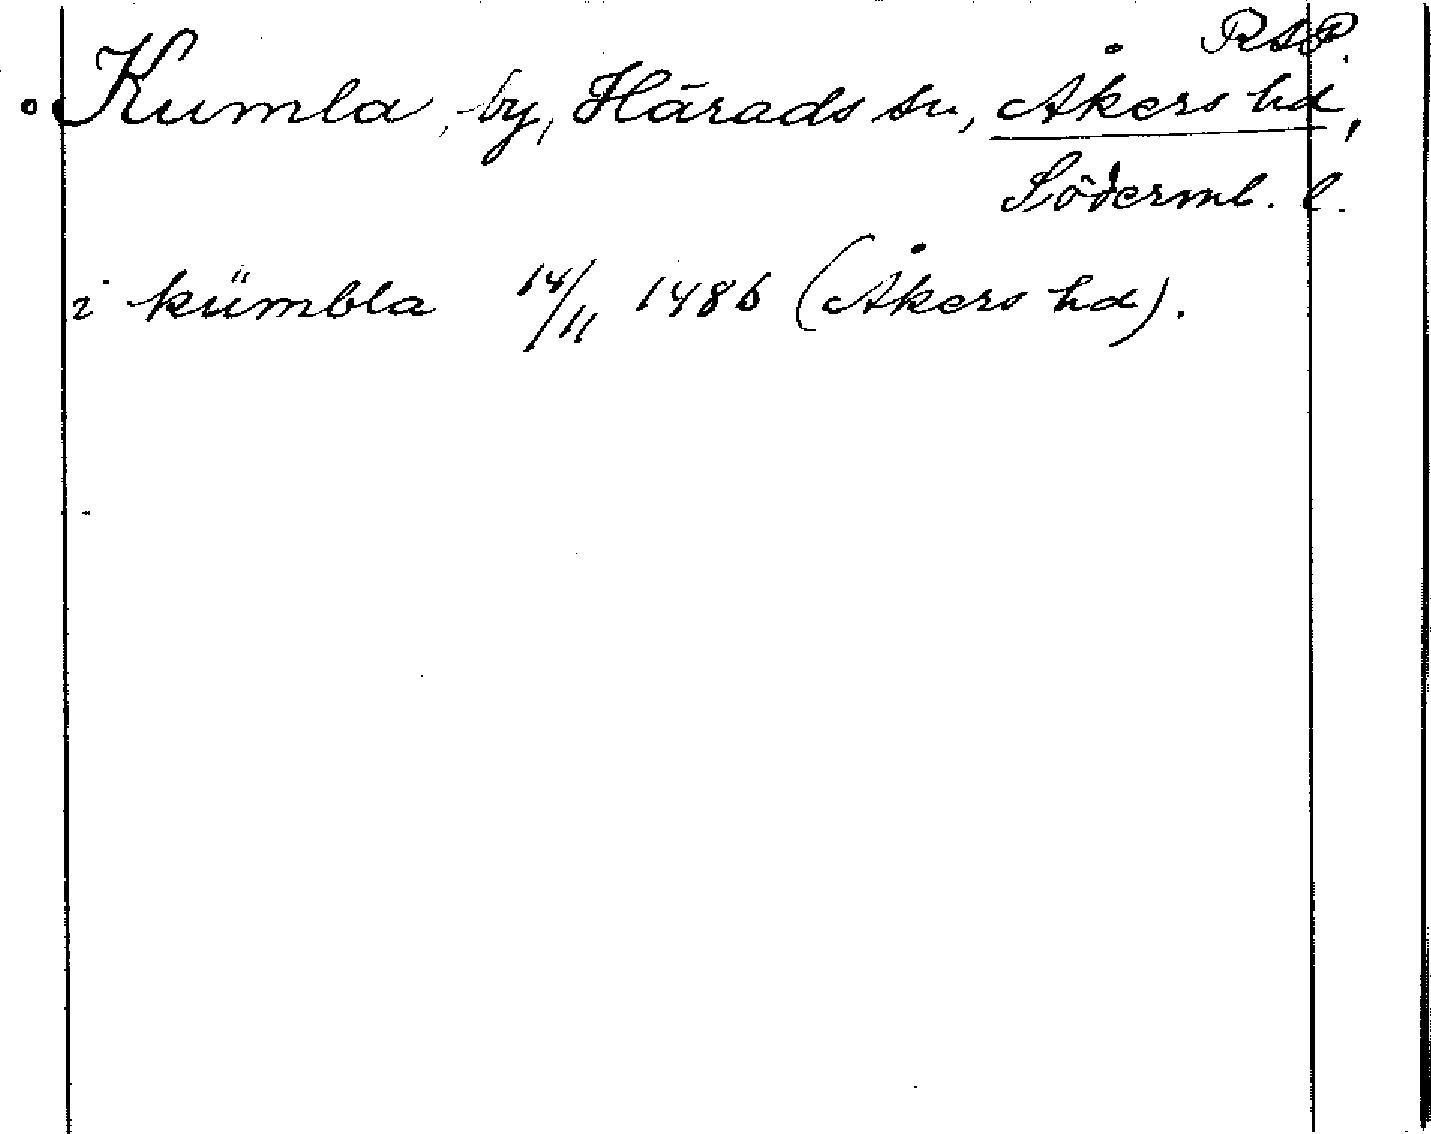 RAP.
Kumla, by, Härads sn, Åkers hd,
Söderml. l.
i kümbla 14/11 1486 (Åkers hd).